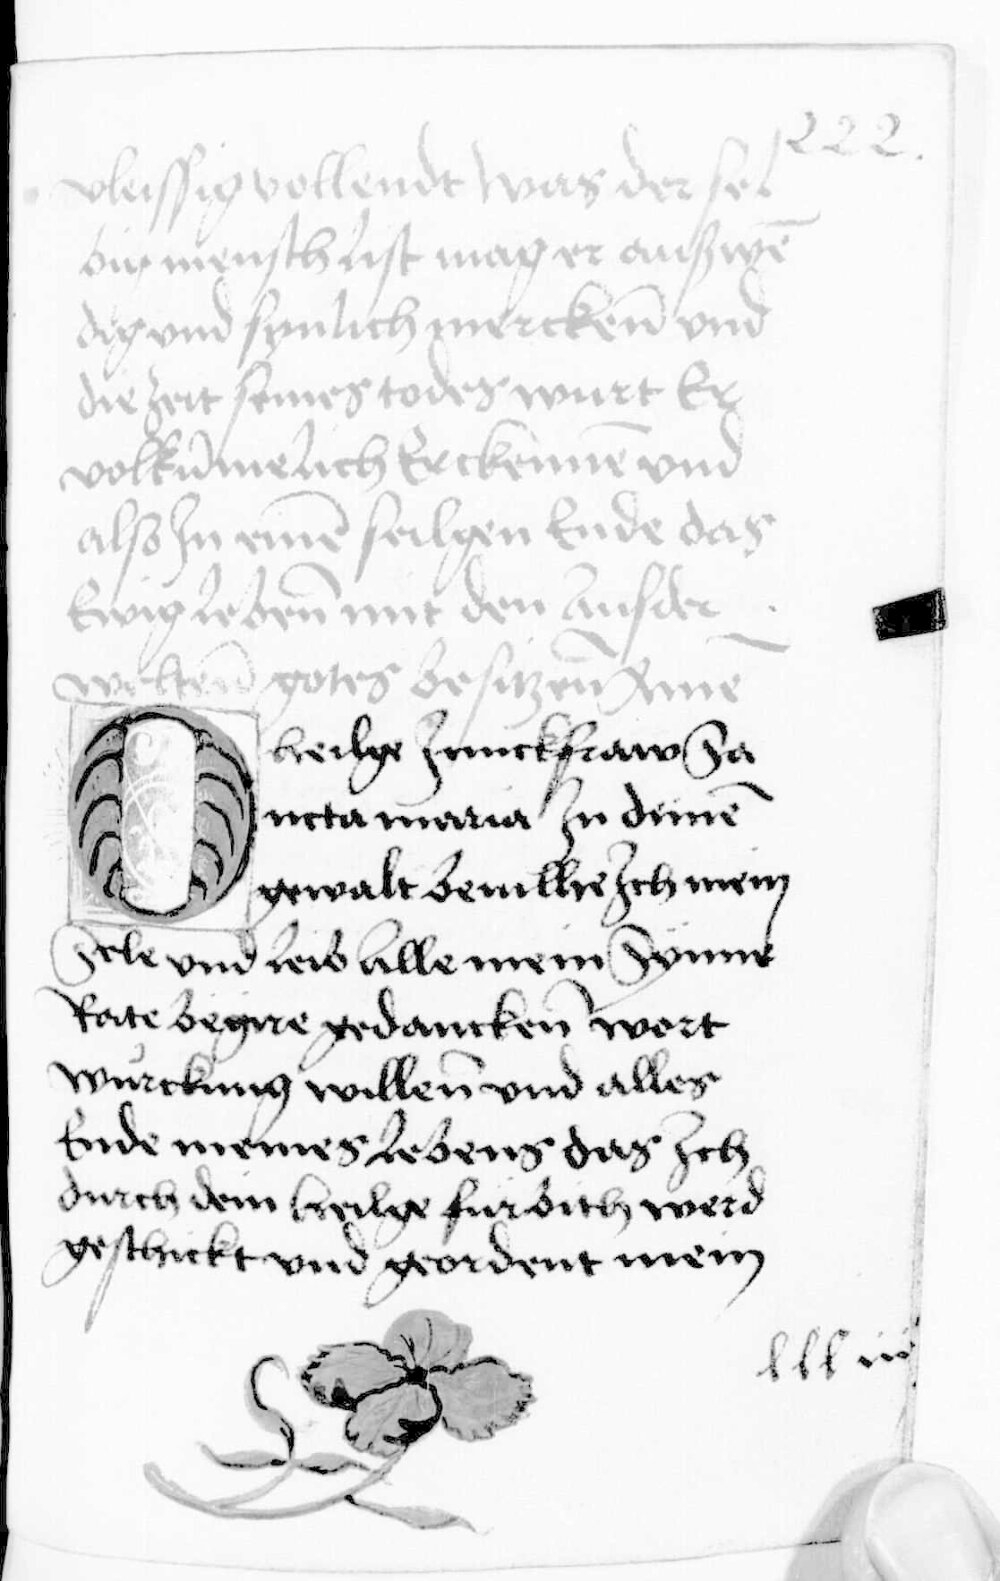 222.
vleissig vollendt Was der sel
big mensch list mag er auszwē
dig vnd synlich merckeñ vnd
die zeit seines todes wurt Er
volkūmelich Erckennē vnd
also In einē seilgen Ende das
Ewig lebeñ mit den Auszder
welteñ gotes besitzeñ Amē
O heilge Junckfraw Sa
ncta maria In deinē
gewalt bevillhe Ich mein
Sele vnd leib Alle mein Synne
Rate begire gedanckeñ wort
würckung willeñ vnd alles
Ende meines lebens das Ich
durch dein heilge fürbith werd
geschickt vnd geordent mein
lll iij